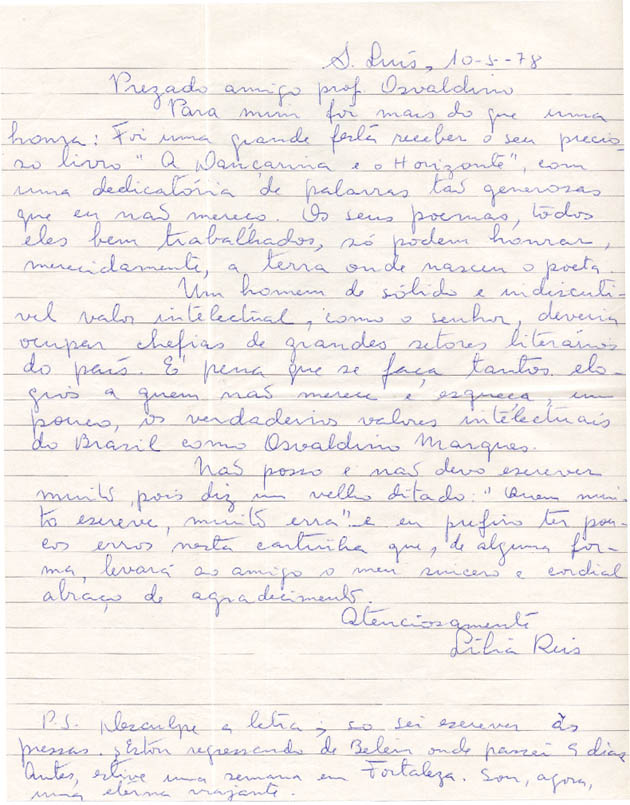 S. Luís, 10-5-78
Prezado amigo prof. Osvaldino
Para mim foi mais do que uma
honra: Foi uma grande festa receber o seu precio-
so livro "A Dançarina e o Horizonte", com
uma dedicatória de palavras tão generosas
que eu não mereço. Os seus poemas, todos
eles bem trabalhados, só podem honrar,
merecidamente, a terra onde nasceu o poeta.
Um homem de sólido e indiscuti-
vel valor intelectual, como o senhor, deveria
ocupar chefias de grandes setores literários
do país. É pena que se faça tantos elo-
gios a quem não merece e esqueça, um
pouco, os verdadeiros valores intelectuais
do Brasil como Osvaldino Marques.
Não posso e não devo escrever
muito, pois diz um velho ditado: "Quem mui-
to escreve, muito erra" e eu prefiro ter pou-
cos erros nesta cartinha que, de alguma for-
ma, levará ao amigo o meu sincero e cordial
abraço de agradecimento.
Atenciosamente
Lília Reis
P.S. Desculpe a letra; só sei escrever às
pressas. Estou regressando de Belém onde passei 9 dias
Antes, estive uma semana em Fortaleza. Sou, agora,
uma eterna viajante.